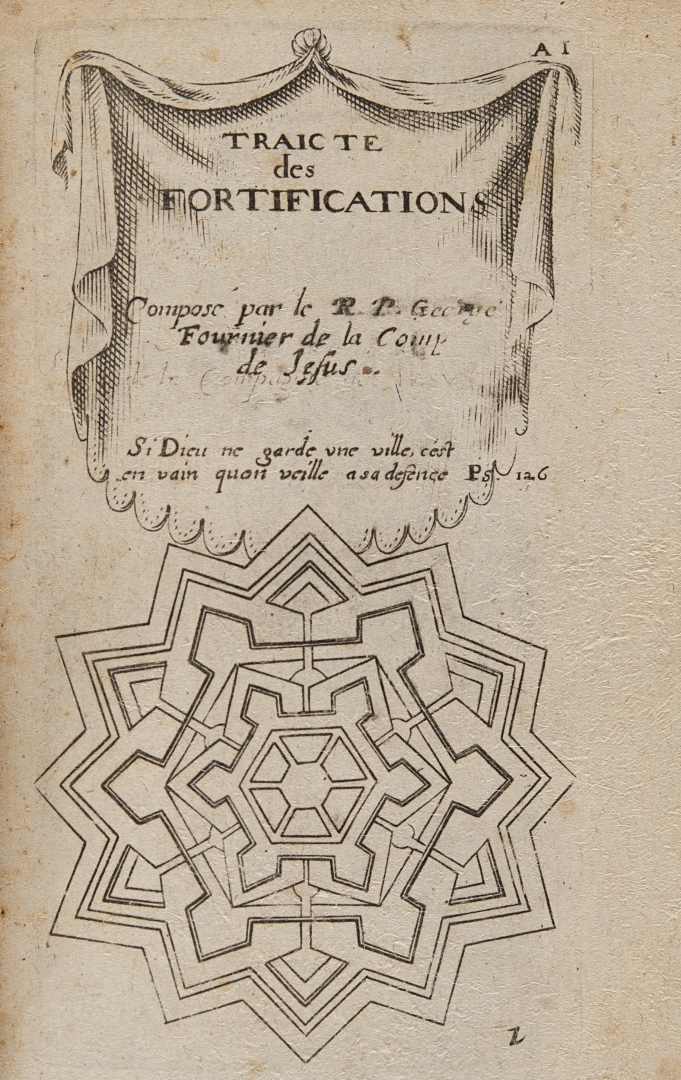 A I
TRAICTE
des
FORTIFICATIONS
Compose par le R. P. George
Fournier de la Comp
de Jesus.
Si Dieu ne garde vne ville, cest
en vain quon veille a sa defence Ps. 126
2